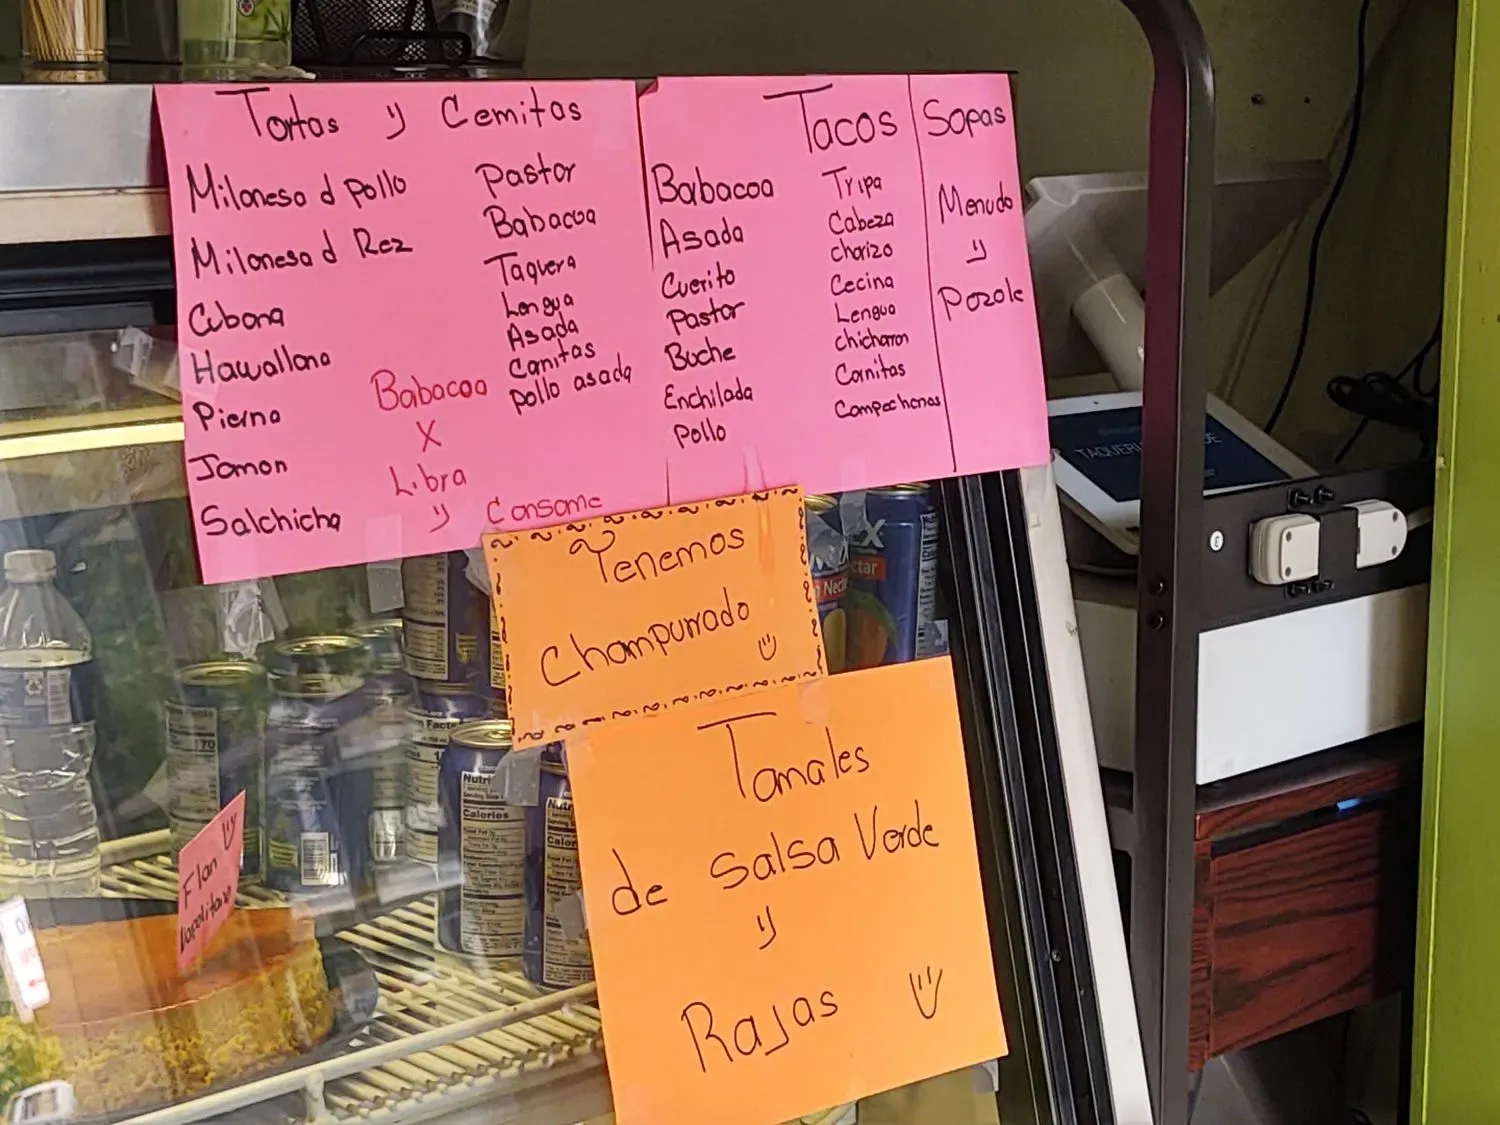 Tortas y Cemitas
Milanesa d pollo
Milanesa d Rez
Cubana
Hawallana
Pierna
Jamon
Salchicha
Pastor
Babacoa
Taquera
Lengua
Asada
Carnitas
Pollo asada
Babacoa
X
Libra
y Consome
Tacos
Babacoa
Asada
Cuerito
Pastor
Buche
Enchilada
Pollo
Tripa
Cabeza
chorizo
Cecina
Lengua
chicharon
Carnitas
Campechanas
Sopas
Menudo
y
Pozole
Tenemos
Champurrado
Tamales
de Salsa Verde
y
Rajas
Flan
Napolitano
Calories
170